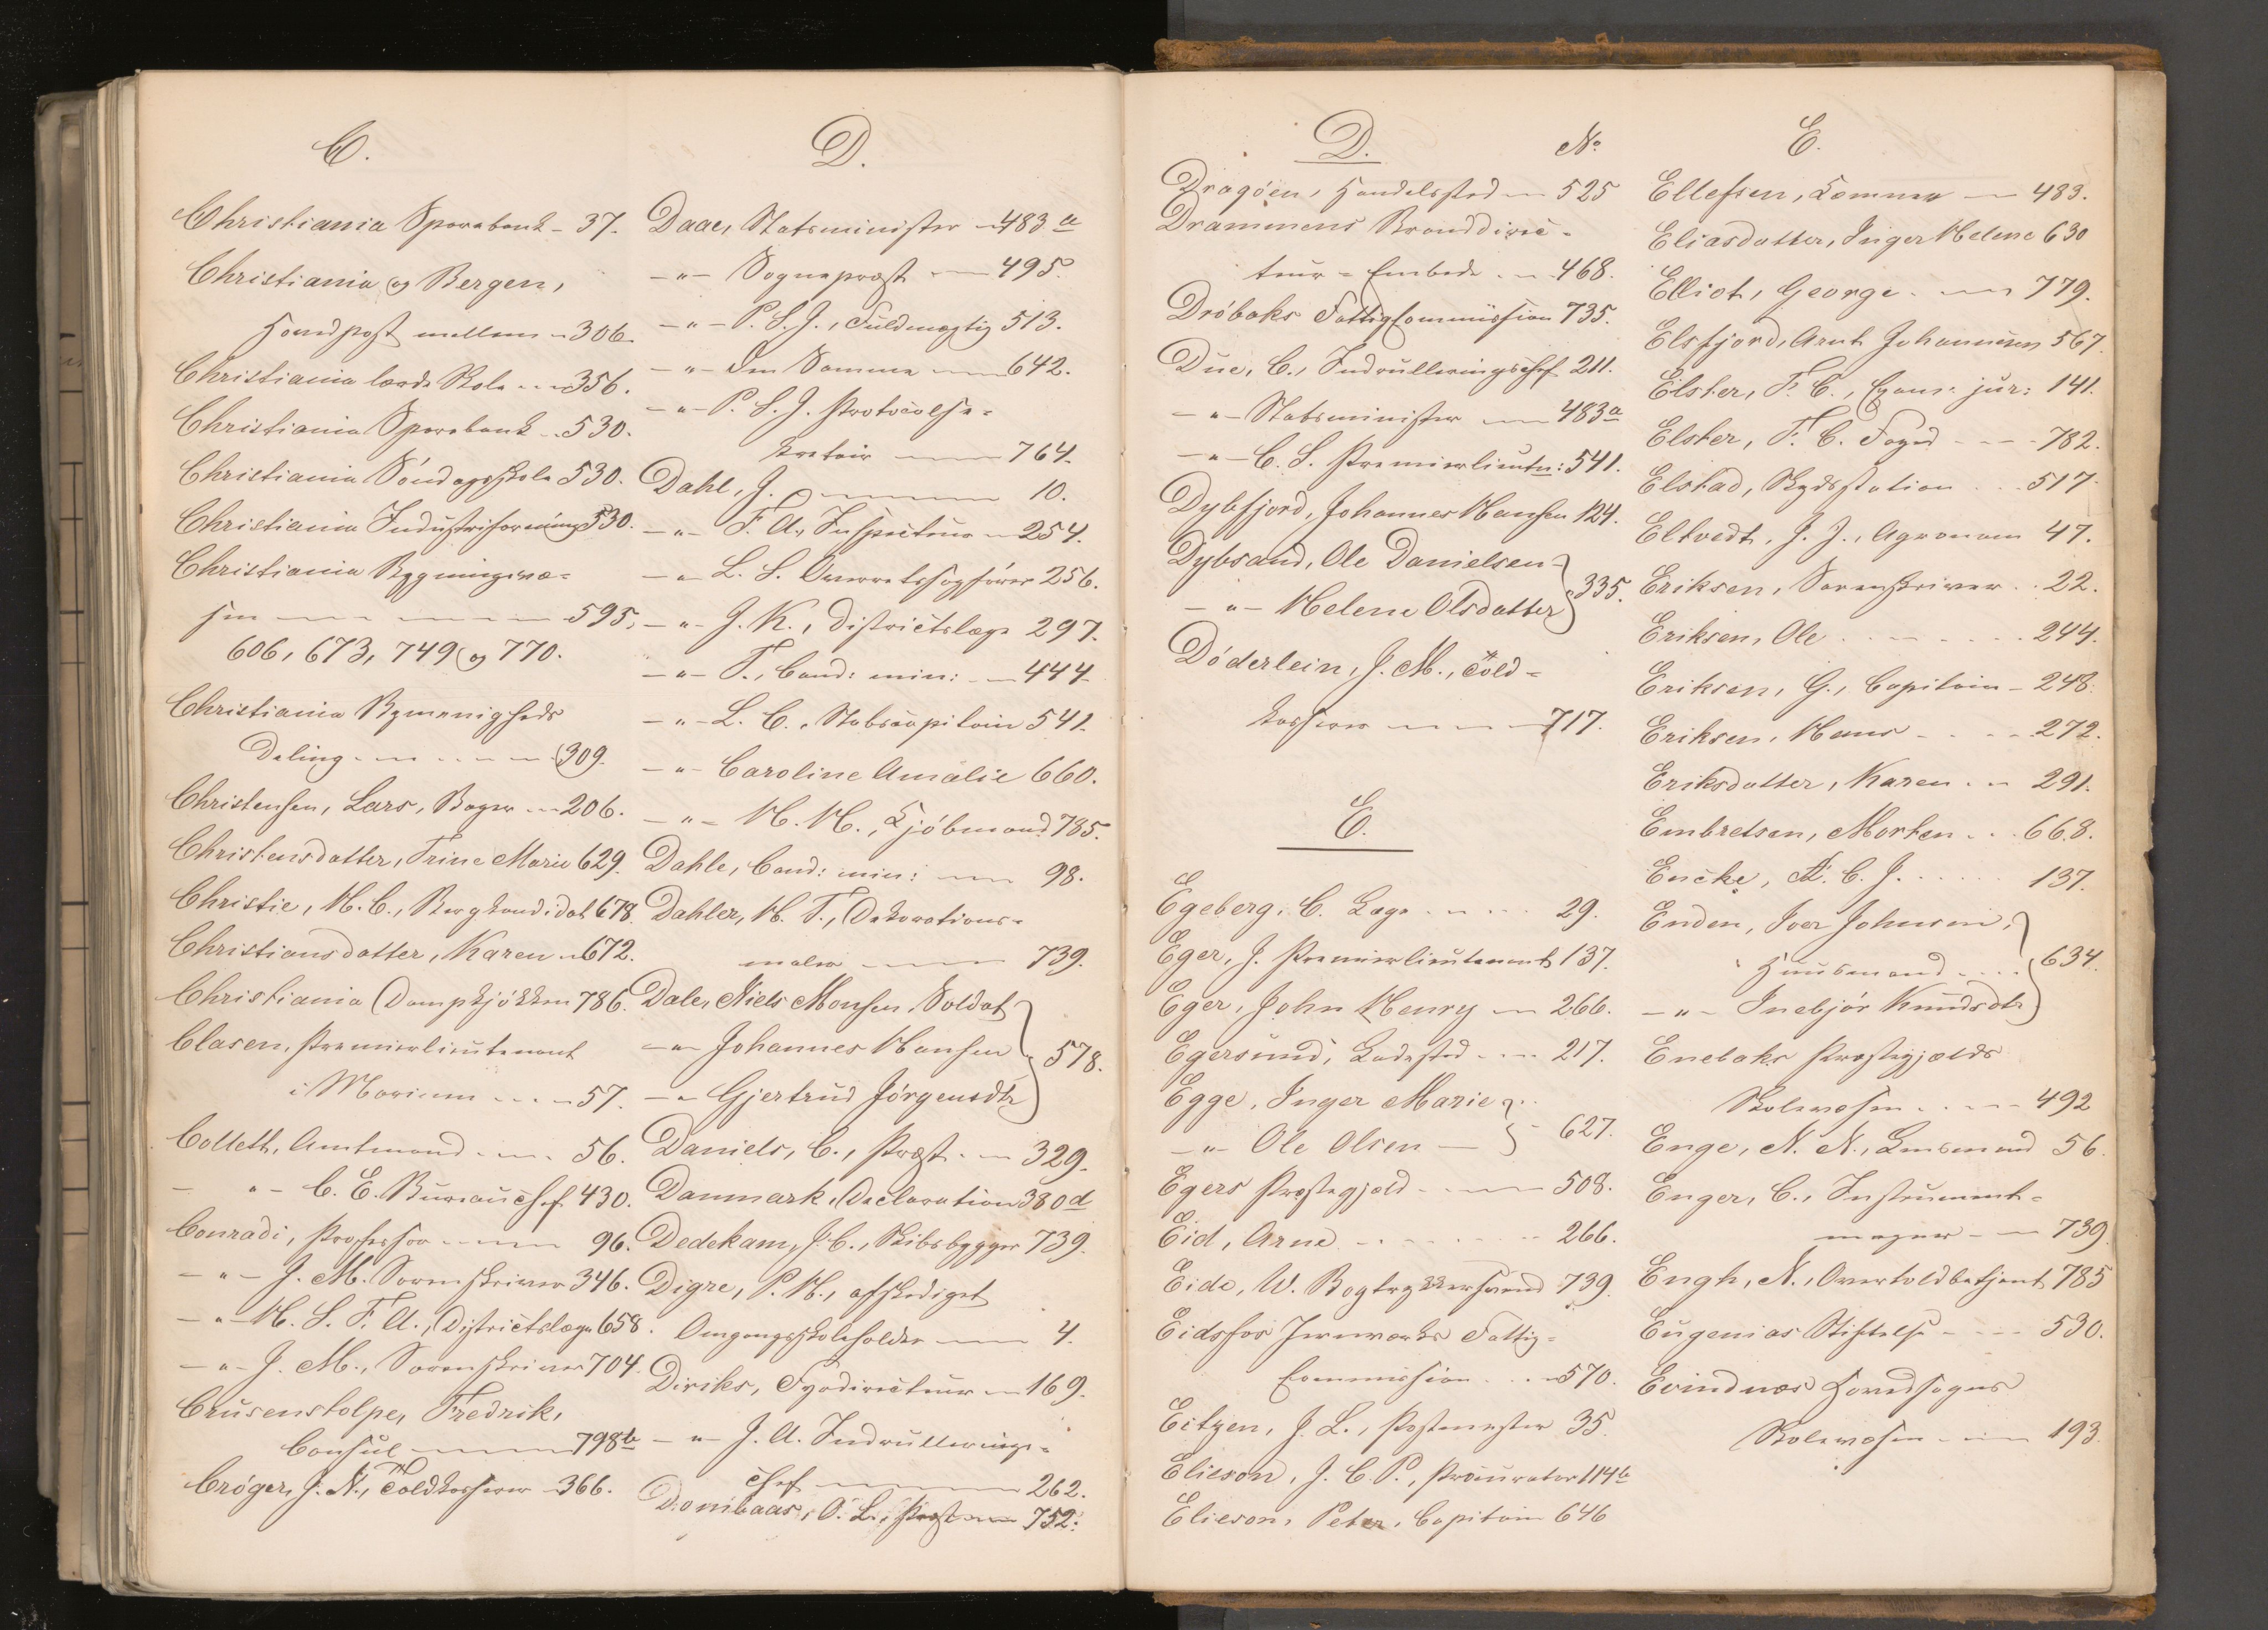 C.
Christiania Sparebank - 37.
Christiania og Bergen,
Landpost mellem - 306.
Christiania lærde Skole - 356.
Christiania Sparebank - 530.
Christiania Söndagsskole 530.
Christiania Industriforening 530.
Christiania Bygningsvæ=
sen - 595,
606, 673, 749 og 770.
Christiania Bymenigheds
Deling - 309.
Christensen, Lars, Bager - 206.
Christensdatter, Trine Marie 629.
Christie, H. C., Bergkandidat 678.
Christiansdatter, Karen - 672.
Christiania Dampkjökken 786.
Clasen, Premierlieutenant
i Marinen - 57.
Collett, Amtmand - 56.
- " - C. E. Bureauchef 430.
Conradi, Professor - 96.
- " - J. M. Sorenskriver 346.
- " - H. S. F. A., Districtslæge 658.
- " - J. M., Sorenskriver 704.
Crusenstolpe, Fredrik,
Consul - 798b
Cröger, J. N., Toldkasserer - 366.
D.
Daae, Statsminister - 483a
- " - Sognepræst - 495.
- " - P. S. J., Fuldmægtig 513.
- " - Den Samme - 642.
- " - P. S. J. Protocolse=
kretair - 764.
Dahl, J. - 10.
- " - F. A., Inspecteur - 254.
- " - L. S. Overretssagförer 256.
- " - J. K., Districtslæge 297.
- " - T., Cand: min: - 444.
- " - L. C., Stabscapitain 541.
- " - Caroline Amalie 660.
- " - H. H., Kjöbmand 785.
Dahle, Cand: min: - 98.
Dahler, H. T., Dekorations=
maler - 739.
Dale, Niels Monsen, Soldat
- " - Johannes Hansen 578.
- " Gjertrud Jörgensdtr
Daniels, C., Præst - 329.
Danmark, Declaration 380d
Dedekam, J. C., Skibsbygger 739.
Digre, P. H., afskediget
Omgangsskoleholder - 4.
Diriks, Fyrdirecteur - 169.
- " - J. A. Indrullerings=
chef - 262.
O. L., Præst - 752.
D. No
Dragöen, Handelssted - 525
Drammens Branddirec=
teur=Embede - 468.
Dröbaks Fattigcommission 735.
Due, C., Indrulleringschef 211.
- " - Statsminister - 483a
- " - C. S. Premierlieutn: 541.
Dybfjord, Johannes Hansen 124.
Dybsand, Ole Danielsen
- " - Helene Olsdatter 335.
Döderlein, J. M., Told=
kasserer - 717.
E.
Egeberg, C. Læge - 29.
Eger, J. Premierlieutenant 137.
Eger, John Henry - 266.
Egersund, Ladested - 217.
Egge, Inger Marie
- " - Ole Olsen - 627.
Egers Præstegjeld - 508.
Eid, Arne - 266.
Eide, W. Bogtrykkersvend 739.
Eidsfos Jernværks Fattig=
Commission - 570.
Eitzen, J. L., Postmester 35.
Elieson, J. C. P., Procurator 114b
Elieson, Peter, Capitain 646
E.
Ellefsen, - 483.
Eliasdatter, Inger Helene 630
Elliot, George - 779.
Elsfjord, Arnt Johannesen 567.
Elster, F. C., Exam: jur: 141.
Elster, F. C. Foged - 782.
Elstad, Skydsstation - 517
Eltvedt, J. J., Agronom 47.
Eriksen, Sorenskriver - 22.
Eriksen, Ole - 244.
Eriksen, G., Capitain - 248.
Eriksen, Hans - 272.
Eriksdatter, Karen - 291.
Embretsen, Morten - 668.
Encke, A. C. J. - 137.
Enden, Iver Johnsen,
Huusmand - 634.
- " - Inebjör Knudsdtr
Enebaks Præstegjælds
Skolevæsen - 492
Enge, N. N., Lensmand 56.
Enger, C., Instrument=
mager - 739
Engh, N., Overtoldbetjent 785
Eugenias Stiftelse - 530.
Evindnæs Hovedsogns
Skolevæsen - 193.